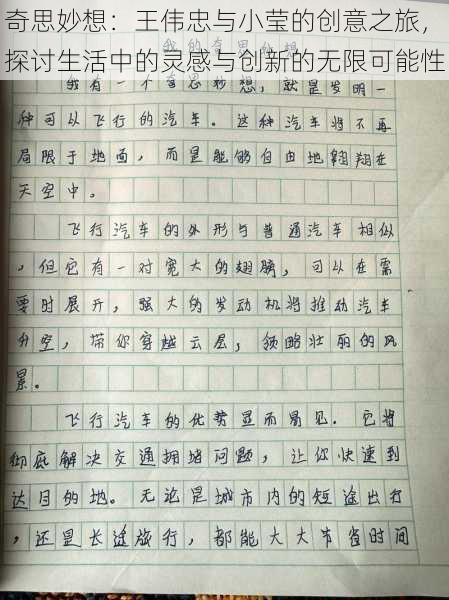 奇思妙想：王伟忠与小莹的创意之旅，
探讨生活中的灵感与创新的无限可能性
我有一个奇思妙想，就是发明一
种可以飞行的汽车。这种汽车将不再
局限于地面，而是能够自由地翱翔在
天空中。
飞行汽车的外形与普通汽车相似
，但它有一对宽大的翅膀，可以在需
要时展开，强大的发动机将推动汽车
升空，带你穿越云层，领略壮丽的风
景。
飞行汽车的优势显而易见。它将
彻底解决交通拥堵问题，让你快速到
达目的地。无论是城市内的短途出行
，还是长途旅行，都能大大节省时间